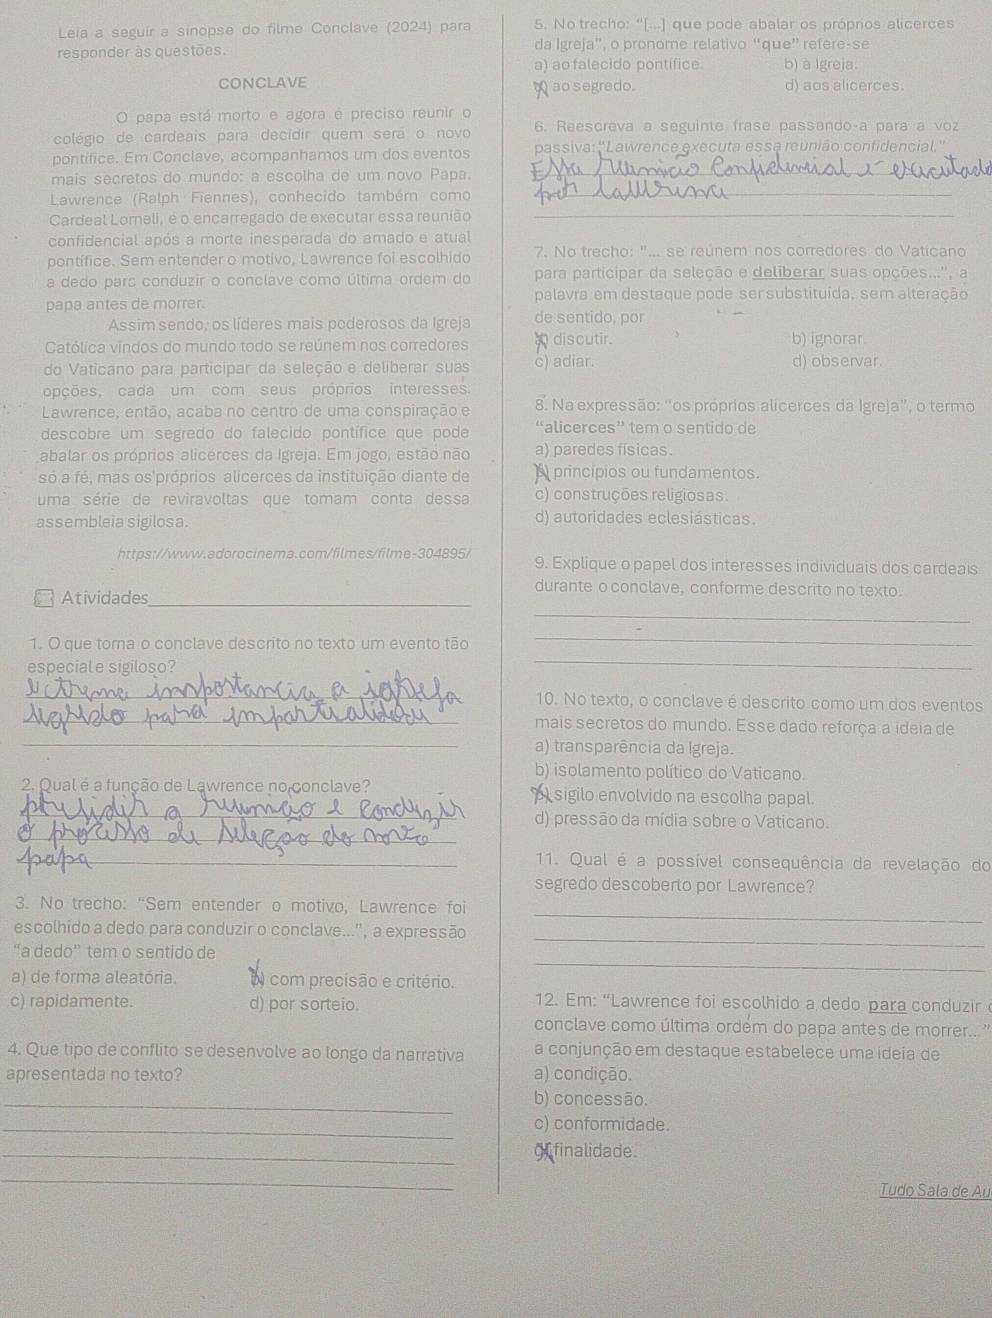 Leia a seguir a sinopse do filme Conclave (2024) para
responder às questões.
CONCLAVE
O papa está morto e agora é preciso reunir o
colégio de cardeais para decidir quem será o novo
pontífice. Em Conclave, acompanhamos um dos eventos
mais secretos do mundo: a escolha de um novo Papa.
Lawrence (Ralph Fiennes), conhecido também como
Cardeal Lomeli, é o encarregado de executar essa reunião
confidencial após a morte inesperada do amado e atual
pontífice. Sem entender o motivo, Lawrence foi escolhido
a dedo para conduzir o conclave como última ordem do
papa antes de morrer.
Assim sendo, os líderes mais poderosos da Igreja
Católica vindos do mundo todo se reúnem nos corredores
do Vaticano para participar da seleção e deliberar suas
opções, cada um com seus próprios interesses.
Lawrence, então, acaba no centro de uma conspiração e
descobre um segredo do falecido pontífice que pode
abalar os próprios alicerces da Igreja. Em jogo, estão não
só a fé, mas os próprios alicerces da instituição diante de
uma série de reviravoltas que tomam conta dessa
assembleia sigilosa.
https://www.adorocinema.com/filmes/filme-304895/
Atividades
1. O que torna o conclave descrito no texto um evento tão
especial e sigiloso?
extrema importancia a igreja
segredo para imparcialidade
2. Qual é a função de Lawrence no conclave?
presidir a reunião e conduzir
o processo de seleção do novo
papa
3. No trecho: “Sem entender o motivo, Lawrence foi
escolhido a dedo para conduzir o conclave...”, a expressão
“a dedo” tem o sentido de
a) de forma aleatória. b) com precisão e critério.
c) rapidamente. d) por sorteio.
4. Que tipo de conflito se desenvolve ao longo da narrativa
apresentada no texto?
5. No trecho: “[...] que pode abalar os próprios alicerces
da Igreja”, o pronome relativo “que” refere-se
a) ao falecido pontífice. b) à Igreja.
ao segredo. d) aos alicerces.
6. Reescreva a seguinte frase passando-a para a voz
passiva: “Lawrence executa essa reunião confidencial.”
Essa reunião confidencial é executada
por
7. No trecho: “... se reúnem nos corredores do Vaticano
para participar da seleção e deliberar suas opções...”, a
palavra em destaque pode ser substituída, sem alteração
de sentido, por
discutir. b) ignorar.
c) adiar. d) observar.
8. Na expressão: “os próprios alicerces da Igreja”, o termo
“alicerces” tem o sentido de
a) paredes físicas.
princípios ou fundamentos.
c) construções religiosas.
d) autoridades eclesiásticas.
9. Explique o papel dos interesses individuais dos cardeais
durante o conclave, conforme descrito no texto.
10. No texto, o conclave é descrito como um dos eventos
mais secretos do mundo. Esse dado reforça a ideia de
a) transparência da Igreja.
b) isolamento político do Vaticano.
sigilo envolvido na escolha papal.
d) pressão da mídia sobre o Vaticano.
11. Qual é a possível consequência da revelação do
segredo descoberto por Lawrence?
12. Em: “Lawrence foi escolhido a dedo para conduzir
conclave como última ordem do papa antes de morrer...”
a conjunção em destaque estabelece uma ideia de
a) condição.
b) concessão.
c) conformidade.
finalidade.
Tudo Sala de Au